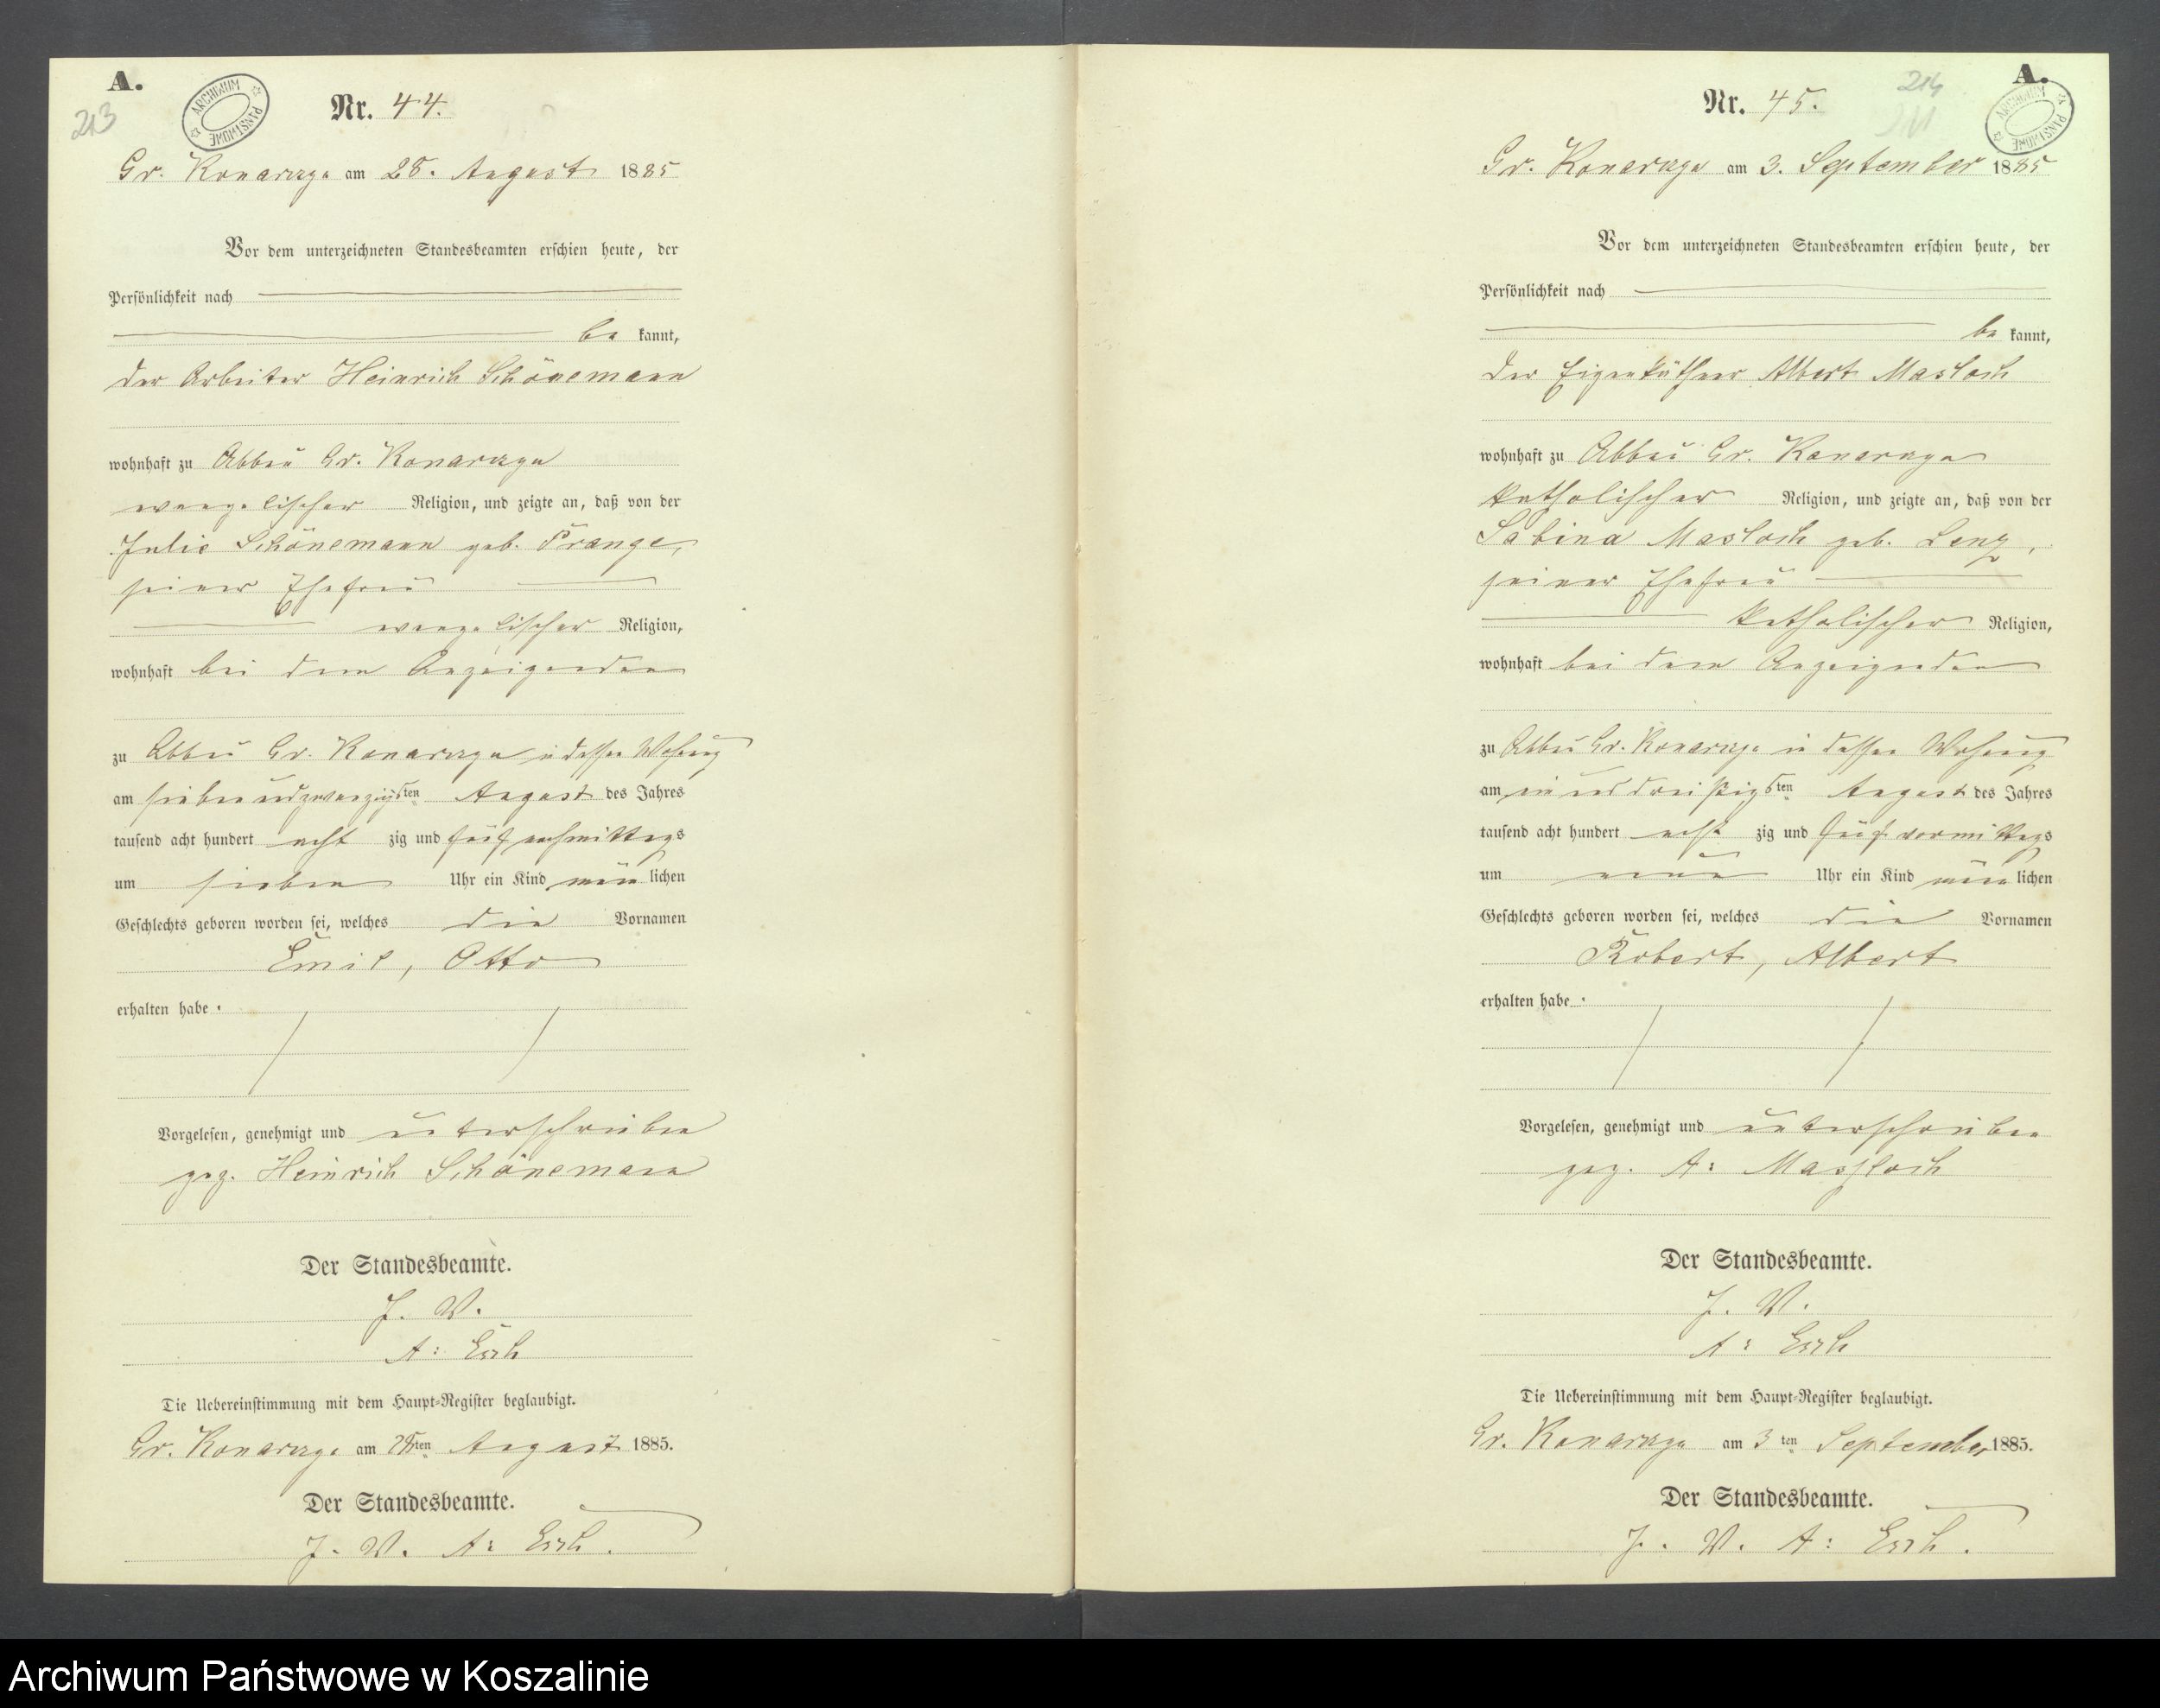 A.
213
ARCHIWUM PAŃSTWOWE
Nr. 44.
Gr. Konarczyn am 28. August 1885
Vor dem unterzeichneten Standesbeamten erschien heute, der
Persönlichkeit nach
be kannt,
der Arbeiter Heinrich Schönemann
wohnhaft zu Abbau Gr. Konarczyn
evangelischer Religion, und zeigte an, daß von der
Julie Schönemann geb. Prange,
seiner Ehefrau
evangelischer Religion,
wohnhaft bei dem Anzeigenden
zu Abbau Gr. Konarczyn in dessen Wohnung
am siebenundzwanzigsten August des Jahres
tausend acht hundert acht zig und fünf nachmittags
um sieben Uhr ein Kind männlichen
Geschlechts geboren worden sei, welches die Vornamen
Emil, Otto
erhalten habe.
Vorgelesen, genehmigt und unterschrieben
gez. Heinrich Schönemann
Der Standesbeamte.
J. V.
A:
Die Uebereinstimmung mit dem Haupt-Register beglaubigt.
Gr. Konarczyn am 28ten August 1885.
Der Standesbeamte.
J. V. A:
A.
214
ARCHIWUM PAŃSTWOWE
Nr. 45.
Gr. Konarczyn am 3. September 1885
Vor dem unterzeichneten Standesbeamten erschien heute, der
Persönlichkeit nach
be kannt,
der Eigenkäthner Albert Masloch
wohnhaft zu Abbau Gr. Konarczyn
katholischer Religion, und zeigte an, daß von der
Sabina Masloch geb. Lenz,
seiner Ehefrau
katholischer Religion,
wohnhaft bei dem Anzeigenden
zu Abbau Gr. Konarczyn in dessen Wohnung
am einunddreißigsten August des Jahres
tausend acht hundert acht zig und fünf vormittags
um neun Uhr ein Kind männlichen
Geschlechts geboren worden sei, welches die Vornamen
Robert, Albert
erhalten habe.
Vorgelesen, genehmigt und unterschrieben
gez. A: Massloch
Der Standesbeamte.
J. V.
A:
Die Uebereinstimmung mit dem Haupt-Register beglaubigt.
Gr. Konarczyn am 3ten September 1885.
Der Standesbeamte.
J. V. A:
Archiwum Państwowe w Koszalinie